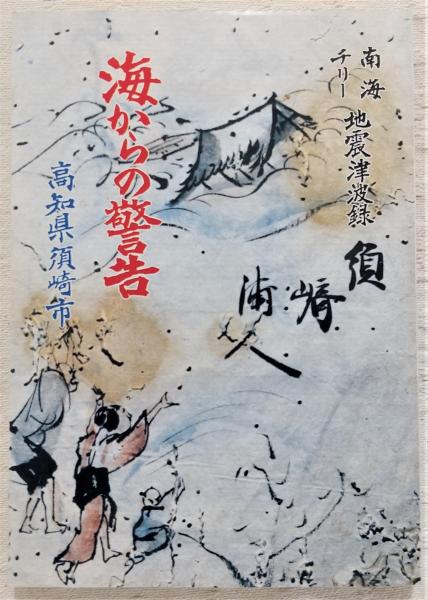 南海
チリー
地震津波録
海からの警告
高知県須崎市
須崎
浦人